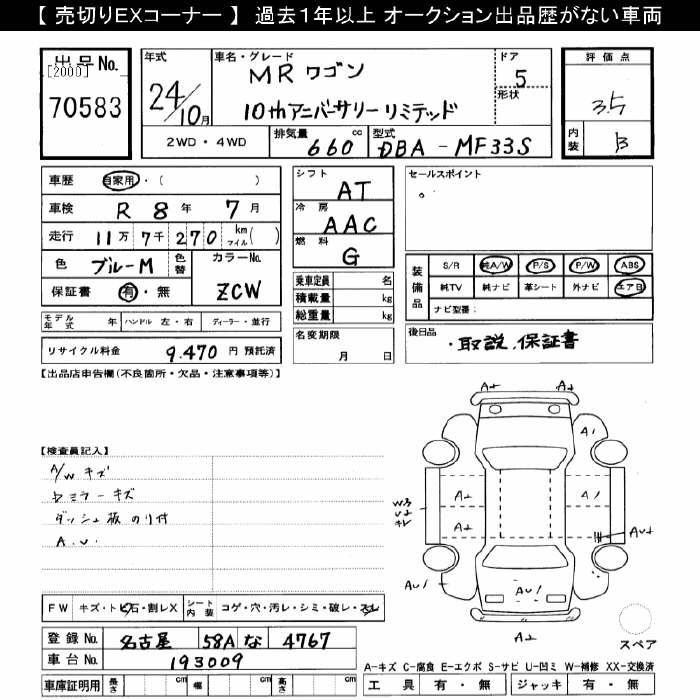 【 売切りEXコーナー 】 過去1年以上 オークション出品歴がない車両
出品No.
[2000]
70583
年式
24/10月
車名・グレード
MRワゴン
10thアニバーサリーリミテッド
ドア
5
形状
2WD・4WD
排気量
660 cc
型式
DBA-MF33S
評価点
3.5
内装
B
車歴 自家用・( )
車検 R 8年 7月
走行 11万 7千 270 km マイル( )
色 ブルーM 色替
カラーNo.
ZCW
保証書 有・無
モデル年式 年 ハンドル 左・右 ディーラー・並行
リサイクル料金 9,470 円 預託済
シフト
AT
冷房
AAC
燃料
G
乗車定員 名
積載量 kg
総重量 kg
名変期限
月 日
セールスポイント
装備品
S/R 純A/W P/S P/W ABS
純TV 純ナビ 革シート 外ナビ エアB
ナビ型番:
後日品
・取説、保証書
【出品店申告欄(不良箇所・欠品・注意事項等)】
【検査員記入】
A/W キズ
ミラーキズ
ダッシュ板 のり付
A.U.
A2 A2
A1
A2 A1
A2
AU2
AU1 AU1
A2
スペア
FW キズ・トビ石・割レX シート内装 コゲ・穴・汚レ・シミ・破レ・スレ
登録No. 名古屋 58A な 4767
車台No. 193009
車庫証明用 長さ cm 幅 cm 高さ cm
A-キズ C-腐食 E-エクボ S-サビ U-凹ミ W-補修 XX-交換済
工具 有・無 ジャッキ 有・無